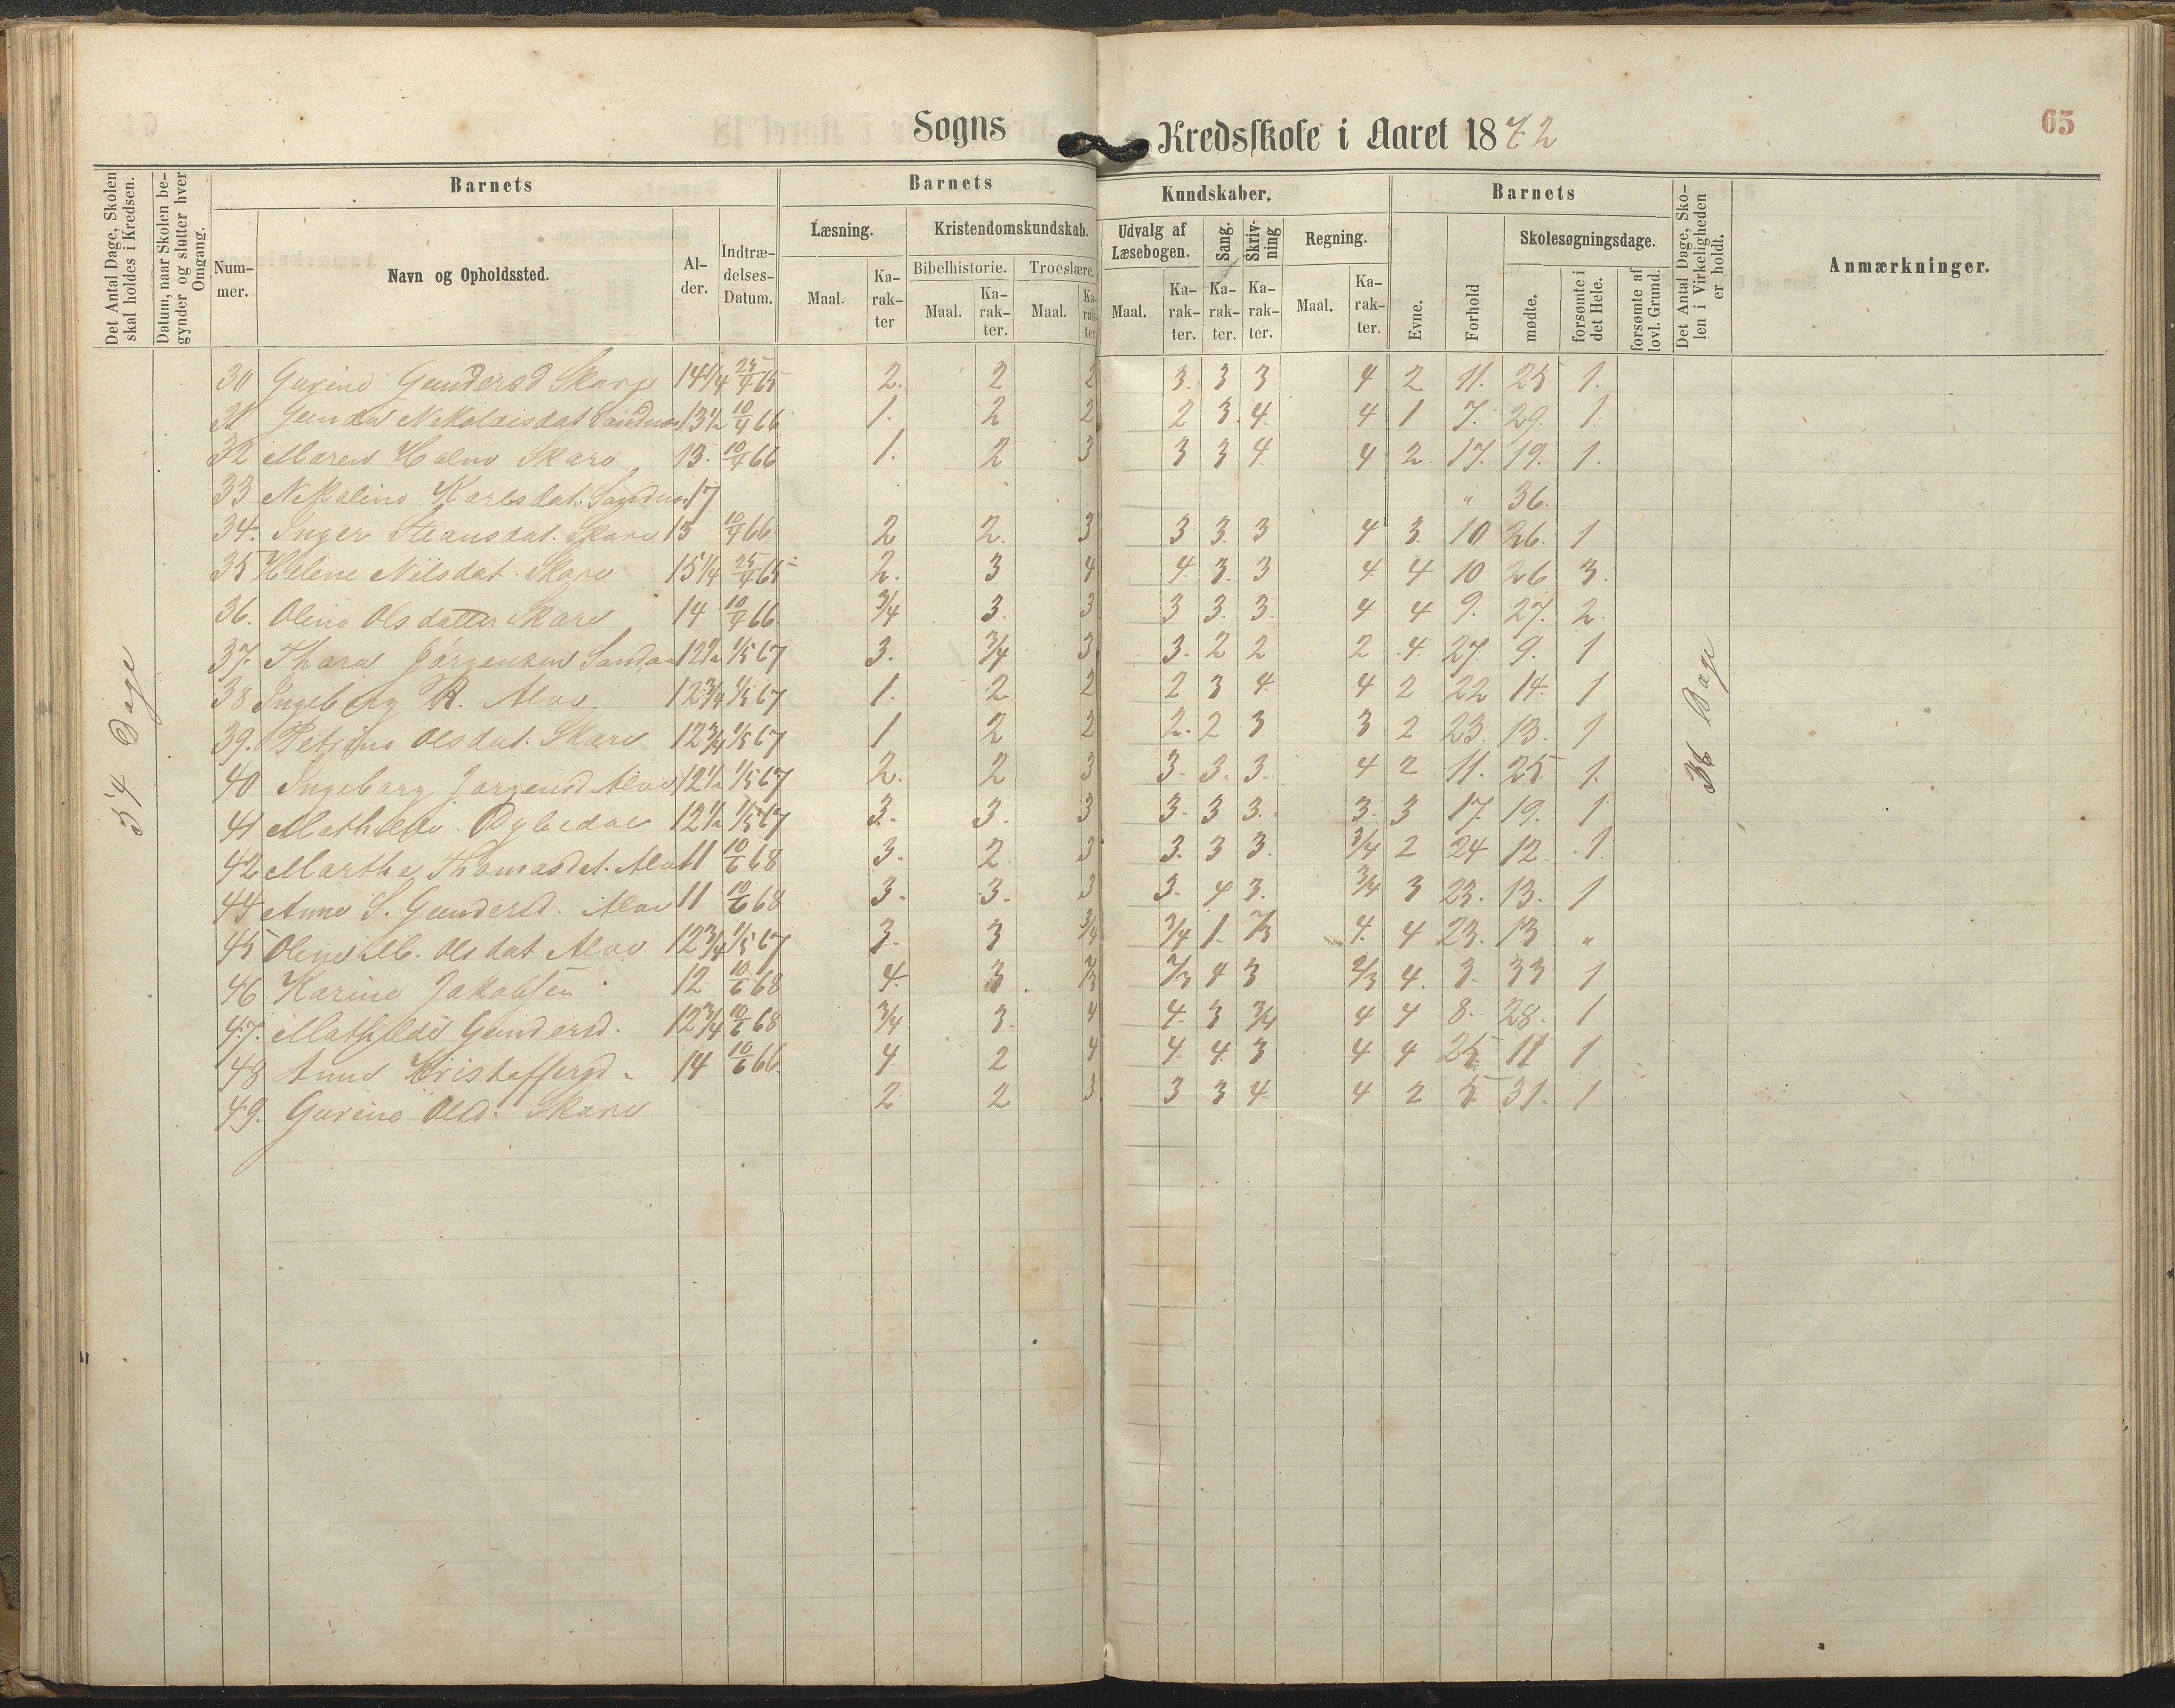 Sogns Kredsskole i Aaret 1872
65
Det Antal Dage, Skolen skal holdes i Kredsen.
Datum, naar Skolen begynder og slutter hver Omgang.
Barnets
Nummer.
Navn og Opholdssted.
Alder.
Indtrædelses-Datum.
Barnets Kundskaber.
Læsning.
Maal.
Karakter
Kristendomskundskab.
Bibelhistorie.
Maal.
Karakter.
Troeslære.
Maal.
Karakter
Udvalg af Læsebogen.
Maal.
Karakter.
Sang.
Karakter.
Skrivning
Karakter.
Regning.
Maal.
Karakter.
Barnets
Evne.
Forhold
Skolesøgningsdage.
mødte.
forsømte i det Hele.
forsømte af lovl. Grund.
Det Antal Dage, Skolen i Virkeligheden er holdt.
Anmærkninger.
54 Dage
36 Dage
30 Gurine Gundersd Skare 14 1/4 25/4 65 2. 2 2 3. 3 3 4 2 11. 25 1.
31 Nikolaisdat 13 1/2 10/4 66 1. 2 2 2 3. 4. 4 1 7. 29. 1.
32 Maren Skare 13. 10/4 66 1. 2 3 3 3 4. 4 2. 17. 19. 1.
33 Nikoline Karlsdat. " 36.
34. Inger Skare 13 10/4 66. 2 2. 3 3 3. 3 4 3. 10 26. 1
35 Helene Nilsdat. Skare 15 1/4 25/4 65 2. 3 4 4. 3. 3 4 4 10 26 3.
36. Oline Olsdatter Skare 14 10/4 66 3/4 3. 3 3 3. 3. 4 4 9. 27. 2.
37. Thara Jørgensen 12 1/2 1/5 67 3. 3/4 3 3. 2 2 2 4. 27. 9. 1
38 Ingeborg Alve 12 3/4 1/5 67 1. 2 2 2 3 4. 4 2 22 14. 1
39. Petrine Olsdat. Skare 12 3/4 1/5 67 1 2 2 2. 2 3 3 2 23. 13. 1
40 Ingeborg Jørgensd Alve 12 1/2 1/5 67 2. 2 3 3. 3. 3. 4 2 11. 25 1.
41 Mathilde 12 1/2 1/5 67 3. 3. 3 3. 3 3. 3. 3 17. 19. 1
42 Marthe Thomasdat. Alve 11 10/6 68 3. 2 3 3. 3 3. 3/4 2 24 12. 1.
44 Anne S. Gundersd. Alve 11 10/6 68 3. 3. 3 3. 4 3. 3/4 3 23. 13. 1
45 Oline M. Olsdat Alve 12 3/4 1/5 67 3. 3 3/4 3/4 1. 2/3 4. 4 23. 13 "
46 Karine Jakobsen 12 10/6 68 4. 3. 2/3 2/3 4 3 2/3 4. 3. 33 1
47. Mathilde Gundersd. 12 3/4 10/6 68 3/4 3. 4 4. 3 3/4 4 4 8. 28. 1
48 Anne Kristoffersd. 14 10/6 66. 4. 2 4 4. 4. 3 4 4 25 11 1
49. Gurine Olsd. Skare 2 2 3 3 3 4. 4 2 5 31. 1